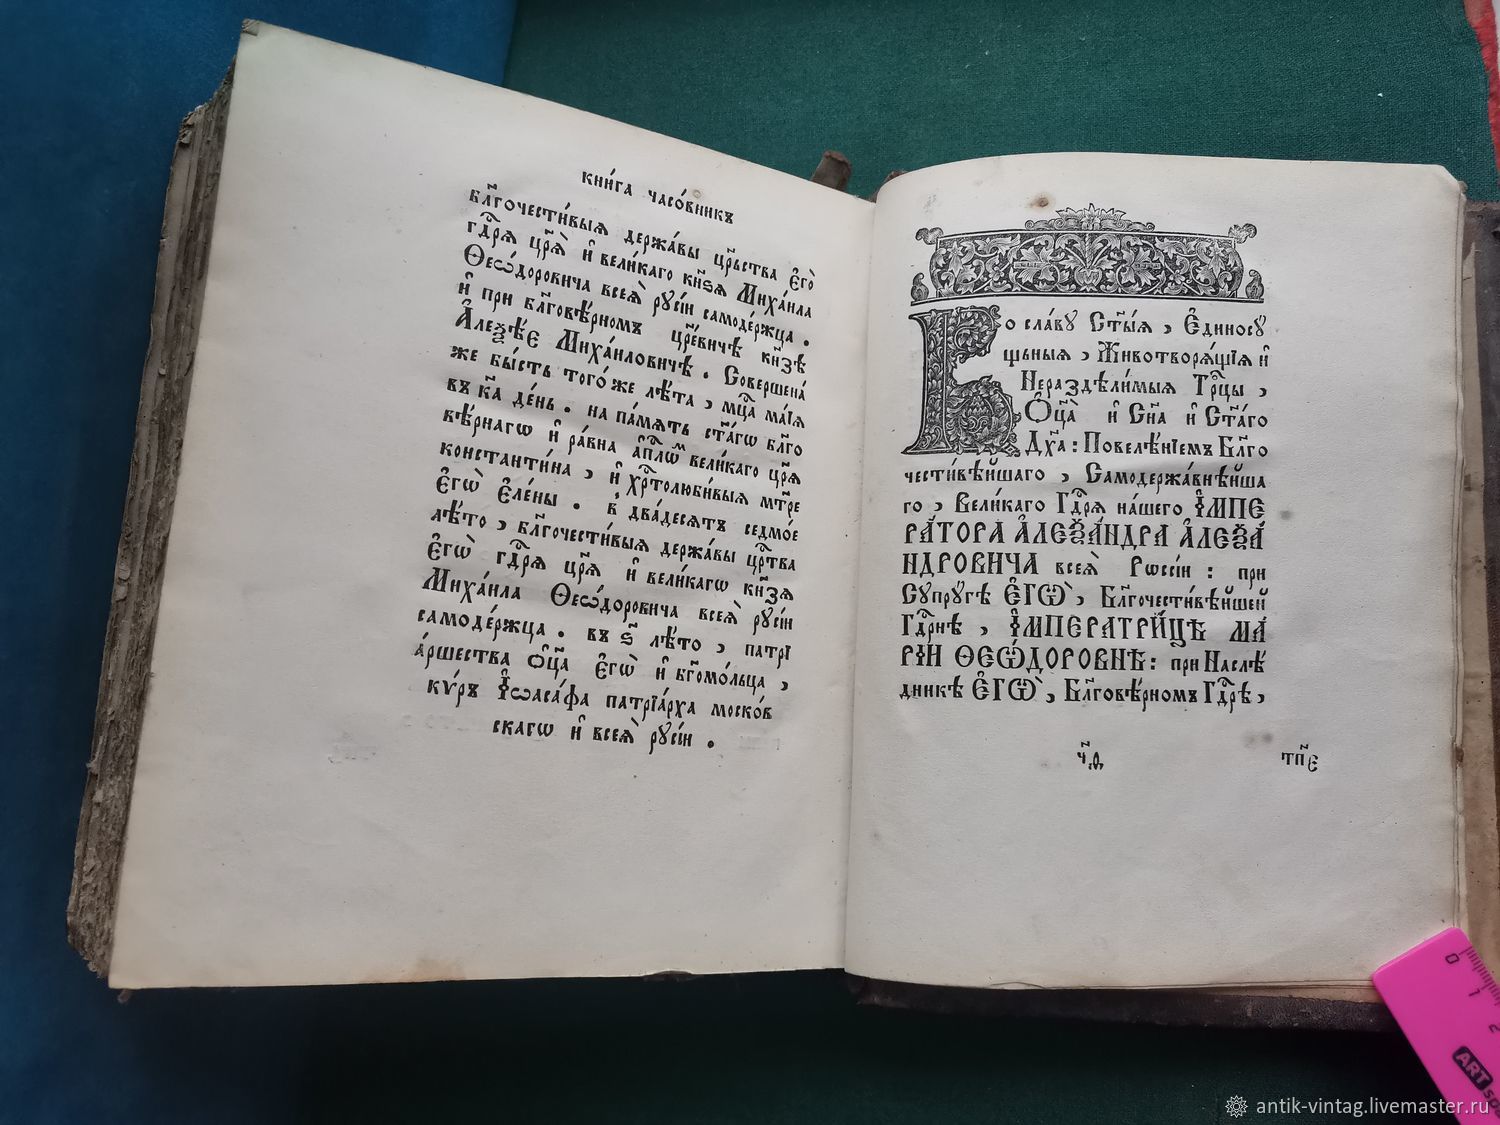 кни́га часо́вникъ
бл҃гочести́выѧ держа́вы цр҃ьства є҆го̀
гдⷭ҇рѧ цр҃ѧ̀ и҆ вели́каго кн҃ѕѧ Миха́ила
Ѳеѡ́доровича всеѧ̀ рꙋсі́и самоде́ржца .
и҆ при бл҃гове́рномъ цр҃е́вичѣ кн҃зѣ
А҆леѯѣ́е Миха́иловичѣ . Соверше́на
же бы́сть того́же лѣ́та , мцⷭ҇а ма́їѧ
въ к҃а де́нь . на па́мѧть ст҃а́гѡ бл҃го
вѣ́рнагѡ и҆ ра́вна а҆пⷭ҇лѡⷨ вели́каго цр҃ѧ
константи́на , и҆ хрⷭ҇толюби́выѧ мт҃ре
є҆гѡ̀ є҆ле́ны . в̾ два́десѧтъ седмо́е
лѣ́то , бл҃гочести́выѧ держа́вы црⷭ҇тва
є҆гѡ̀ гдⷭ҇рѧ цр҃ѧ и҆ вели́кагѡ кн҃зѧ
Миха́ила Ѳеѡ́доровича всеѧ̀ рꙋсі́и
самоде́ржца . въ ѕ҃ лѣ́то , патрї
а́ршества ѻ҆ц҃а є҆гѡ̀ и҆ бг҃омо́льца ,
кѵ́ръ І҆ѡаса́фа патрїа́рха моско́в
скагѡ и҆ всеѧ̀ рꙋсі́и .
Во сла́вꙋ Ст҃ы́ѧ , Є҆диносꙋ
щьныѧ , Животворѧ́щїѧ и҆
Нераздѣли́мыѧ Трⷪ҇цы ,
Ѻ҆ц҃а̀ и҆ Сн҃а и҆ Ст҃а́го
Дх҃а : Повелѣ́нїемъ Бл҃го
чести́вѣйшаго , Самодержа́внѣйша
го , Вели́каго Гдⷭ҇рѧ на́шего И҆МПЕ
РА́ТОРА А҆ЛЕѮА́НДРА А҆ЛЕѮА́
НДРОВИЧА всеѧ̀ Рѡссі́и : при
Сꙋпрꙋгѣ Є҆ГѠ̀ , Бл҃гочести́вѣйшей
Гдⷭ҇рнѣ , И҆МПЕРАТРИ́ЦѢ МА
РІ́И ѲЕѠ́ДОРОВНѢ : при Наслѣ́
дникѣ Є҆ГѠ̀ , Бл҃говѣ́рномъ Гдⷭ҇рѣ ,
тп҃е